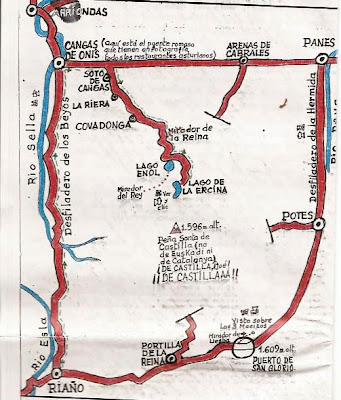 ARRIONDAS
CANGAS
DE ONIS
(aquí está el puente romano
que tienen en fotografía
todos los restaurantes asturianos)
ARENAS DE
CABRALES
PANES
SOTO
DE
CANGAS
LA RIERA
COVADONGA
Mirador
de la
Reina
LAGO
ENOL
LAGO DE
LA ERCINA
Mirador
del Rey
Río Sella
Desfiladero de los Beyos
Desfiladero de la Hermida
Río Deva
POTES
1.596m.alt.
Peña Santa de
Castilla (no
de Euskadi ni
de Catalunya)
¡¡DE CASTILLAAA!!
Vista sobre
Mirador de
1.609m.alt.
PUERTO DE
SAN GLORIO
PORTILLA
DE LA
REINA
Río Esla
RIAÑO